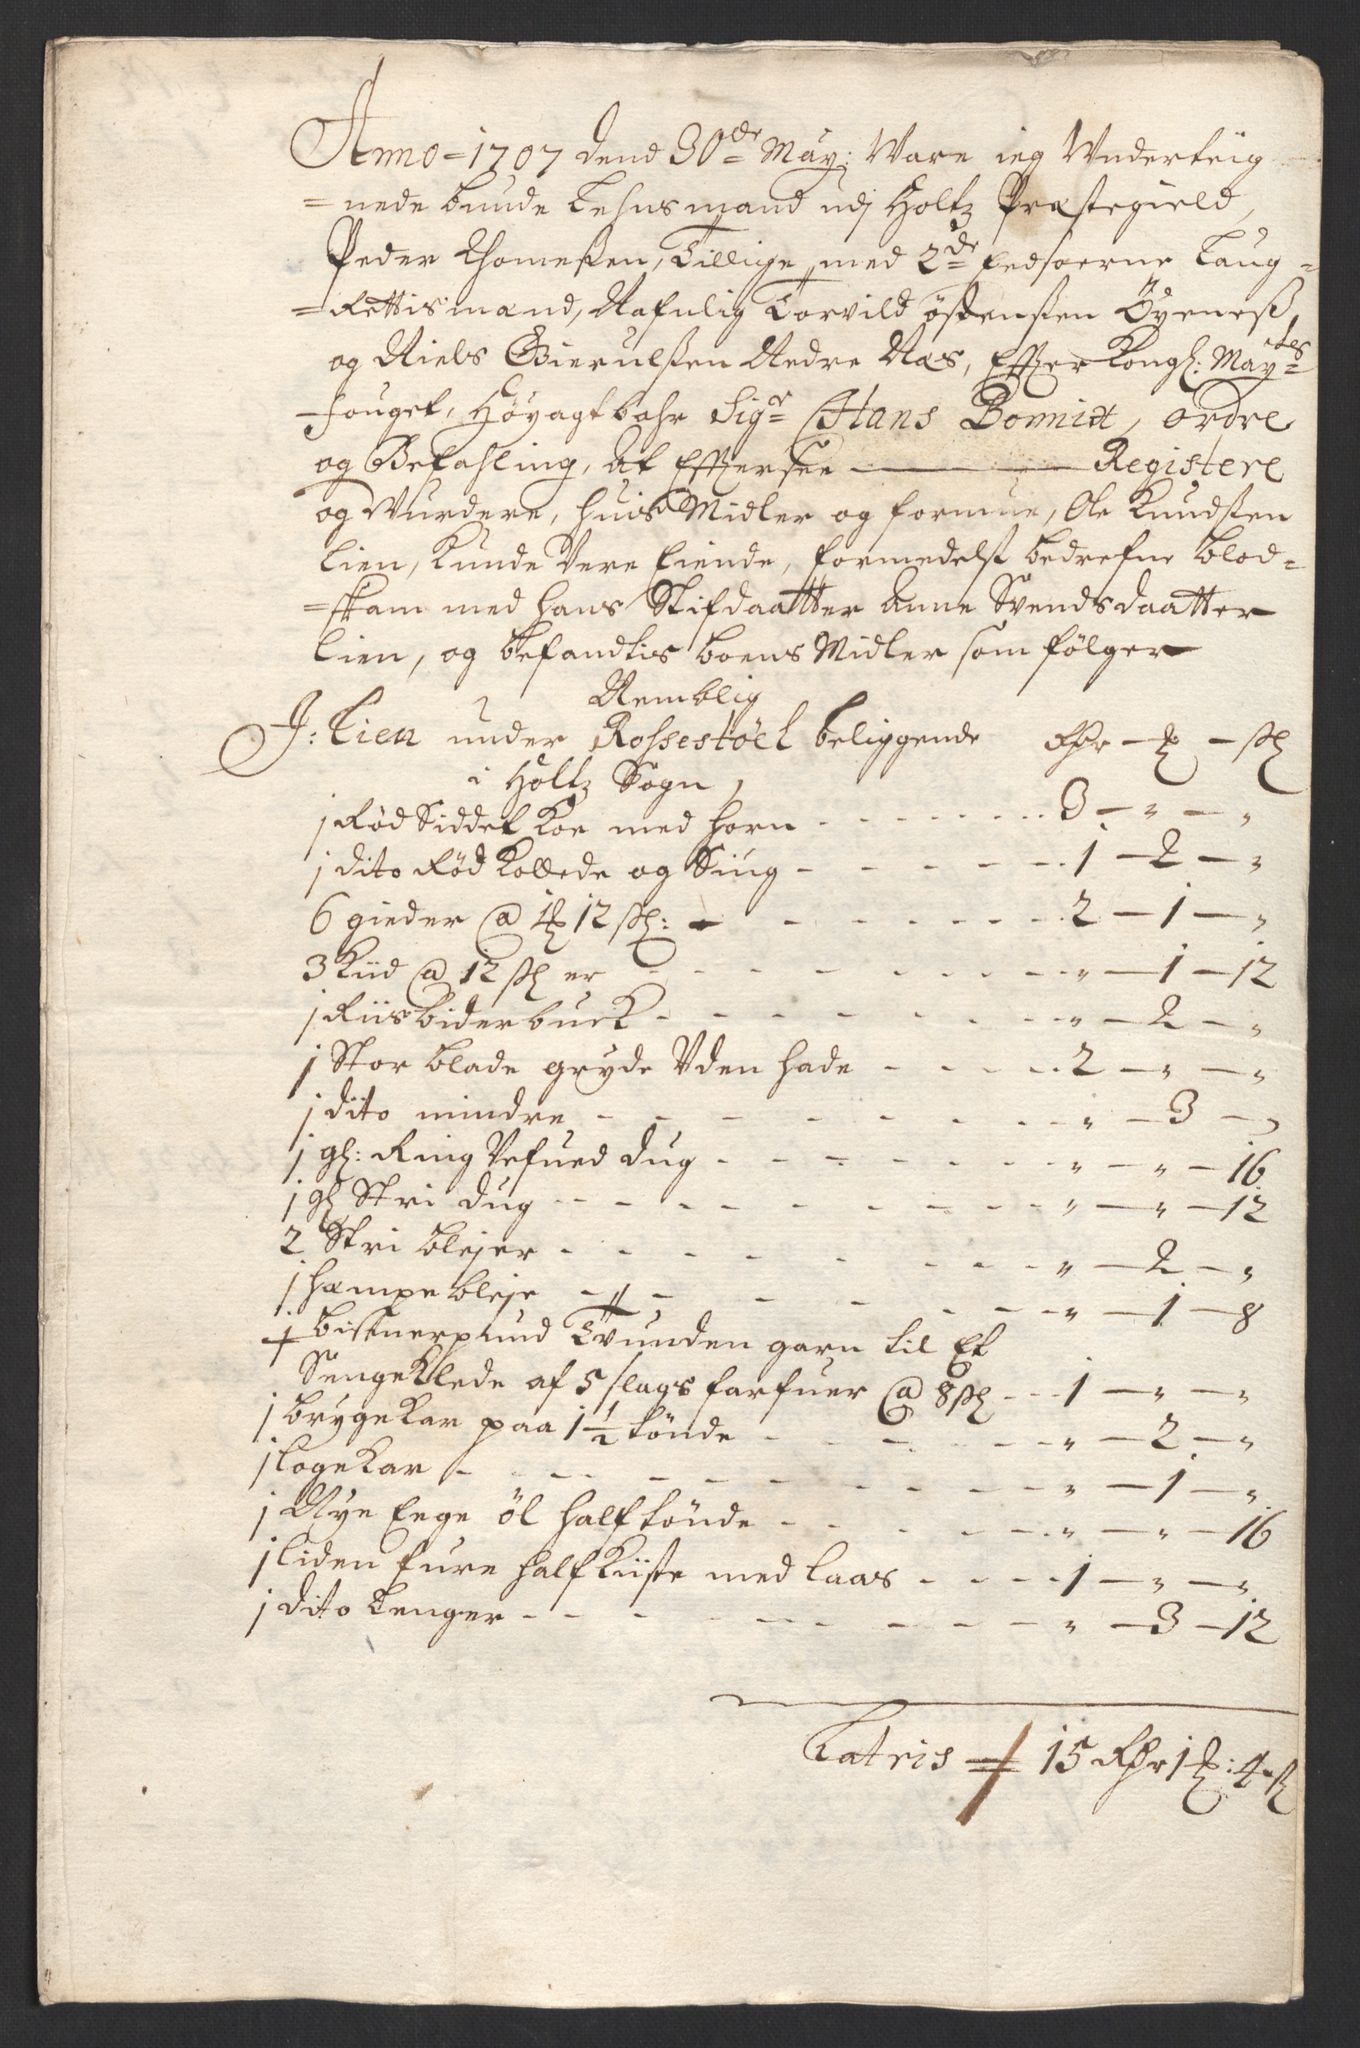 Anno - 1707 dend 30de May: Ware ieg Underteig
= nede bunde Lehnsmand udj Holtz Præstegield,
Peder Thomeßen, Tillige med 2de Eedsoerne Laug=
=Rettismænd, Nafnlig Torvild Østensten Öyeneß,
og Niels Gierulsten Nedre Næs, Effter Kongl: Maytes
fouget, Høyagtbahr Sigr Hans Bomidt, ordre
og Befahling, at Effersee ——— Registere
og Wurdere, huis Midler og formue, Ole Knudsten
Lien, Kunde Vere Eiende, formedelst bedrefne blod=
=skam med hans Stifdaatter Anne Svendsdaatter
Lien, og befandtis boens Midler som følger
Nemblig
J: Lien under Rossestöel beliggende Rdr — ɱ — sk
i Holtz Sogn,
1 Rød Siddet Koe med horn - - - 3 — " — "
1 dito Rød Kollede og Ting - - - 1 — 2 — "
6 gieder @ 1ɱ 12 sk: - - - 2 — 1 — "
3 Kiid @ 12 sk er - - - " — 1 — 12
1 Riisbiderbuck - - - " — 2 — "
1 Stor blade gryde Uden hade - - - 2 — " — "
1 dito mindre - - - " — 3 — "
1 gl: Ring Vefued dug - - - " — " — 16
1 gl Stri dug - - - " — " — 12
2 Stri blejer - - - " — 2 — "
1 hampe bleje - - - " — 1 — 8
1 bismerpund Tvunden garn til Et
Sengeklede af 5 slags farfuer @ 8 sk - - - 1 — " — "
1 brygekar paa 1 1/2 tönde - - - " — 2 — "
1 logekar - - - " — 1 — "
1 Nye Eege öl halftönde - - - " — " — 16
1 liden fure halfkiiste med laas - - - 1 — " — "
1 dito Lenger - - - " — 3 — 12
Latris = 15 Rdr 1 ɱ: 4 sk